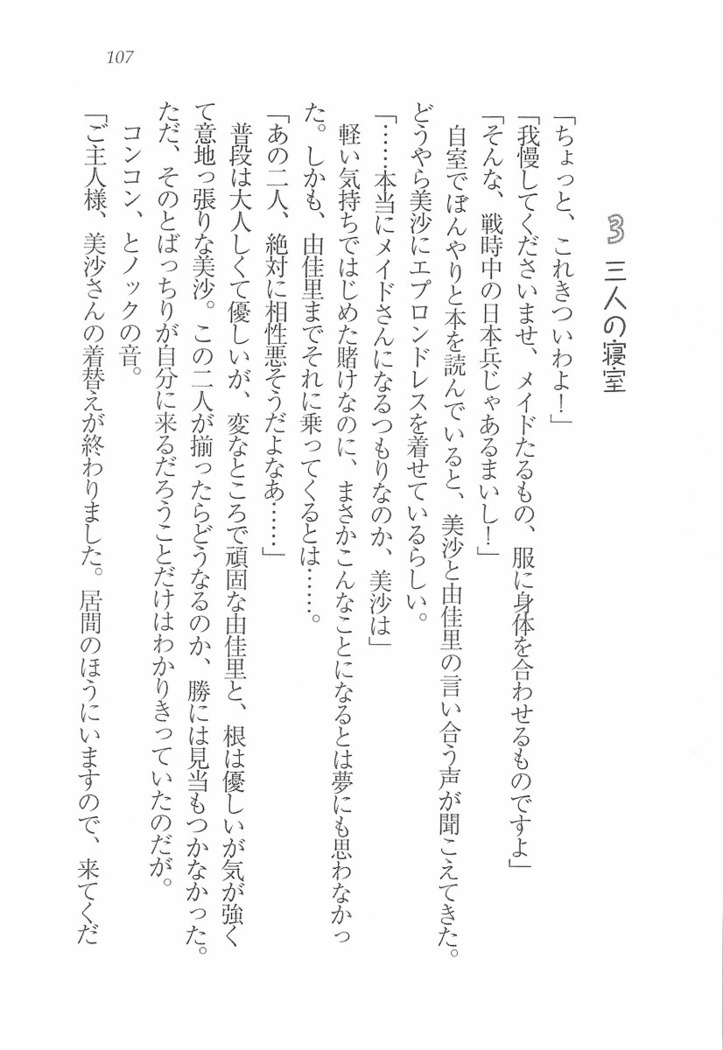 107
3 三人の寝室
「ちょっと、これきついわよ！」
「我慢してくださいませ、メイドたるもの、服に身体を合わせるものですよ」
「そんな、戦時中の日本兵じゃあるまいし！」
自室でぼんやりと本を読んでいると、美沙と由佳里の言い合う声が聞こえてきた。
どうやら美沙にエプロンドレスを着せているらしい。
「……本当にメイドさんになるつもりなのか、美沙は」
軽い気持ちではじめた賭けなのに、まさかこんなことになるとは夢にも思わなかっ
た。しかも、由佳里までそれに乗ってくるとは……。
「あの二人、絶対に相性悪そうだよなあ……」
普段は大人しくて優しいが、変なところで頑固な由佳里と、根は優しいが気が強く
て意地っ張りな美沙。この二人が揃ったらどうなるのか、勝には見当もつかなかった。
ただ、そのとばっちりが自分に来るだろうことだけはわかりきっていたのだが。
コンコン、とノックの音。
「ご主人様、美沙さんの着替えが終わりました。居間のほうにいますので、来てくだ